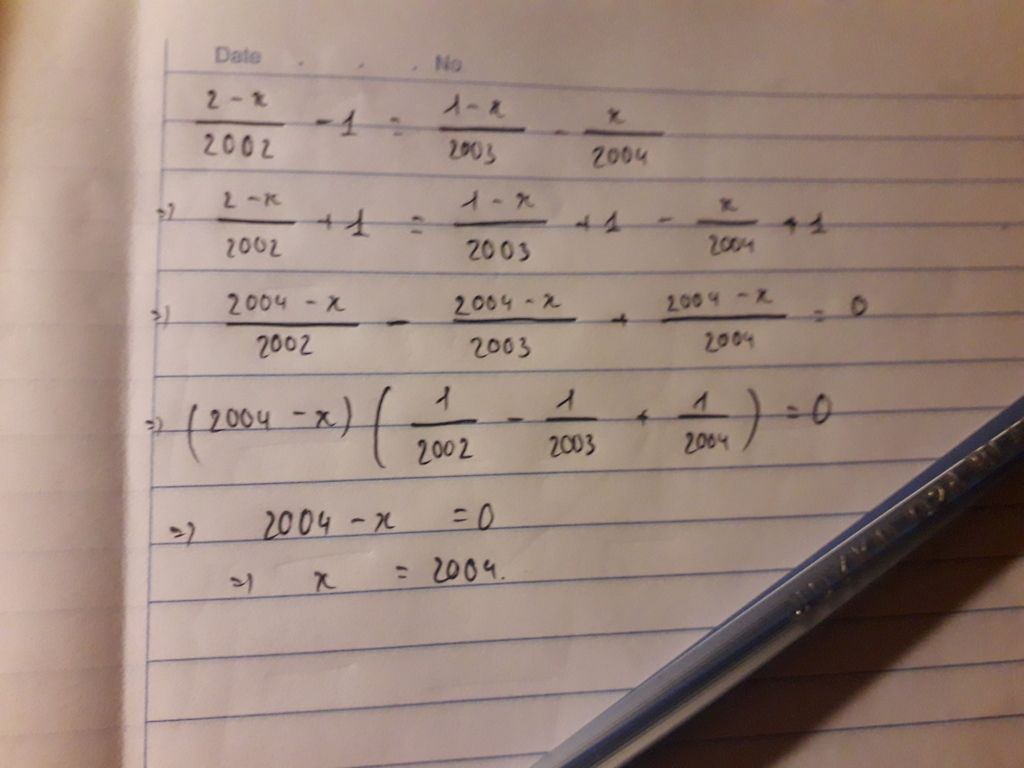 Date . . . No
(2 - x)/2002 - 1 = (1 - x)/2003 - x/2004
=> (2 - x)/2002 + 1 = (1 - x)/2003 + 1 - x/2004 + 1
=> (2004 - x)/2002 - (2004 - x)/2003 + (2004 - x)/2004 = 0
=> (2004 - x) (1/2002 - 1/2003 + 1/2004) = 0
=> 2004 - x = 0
=> x = 2004.